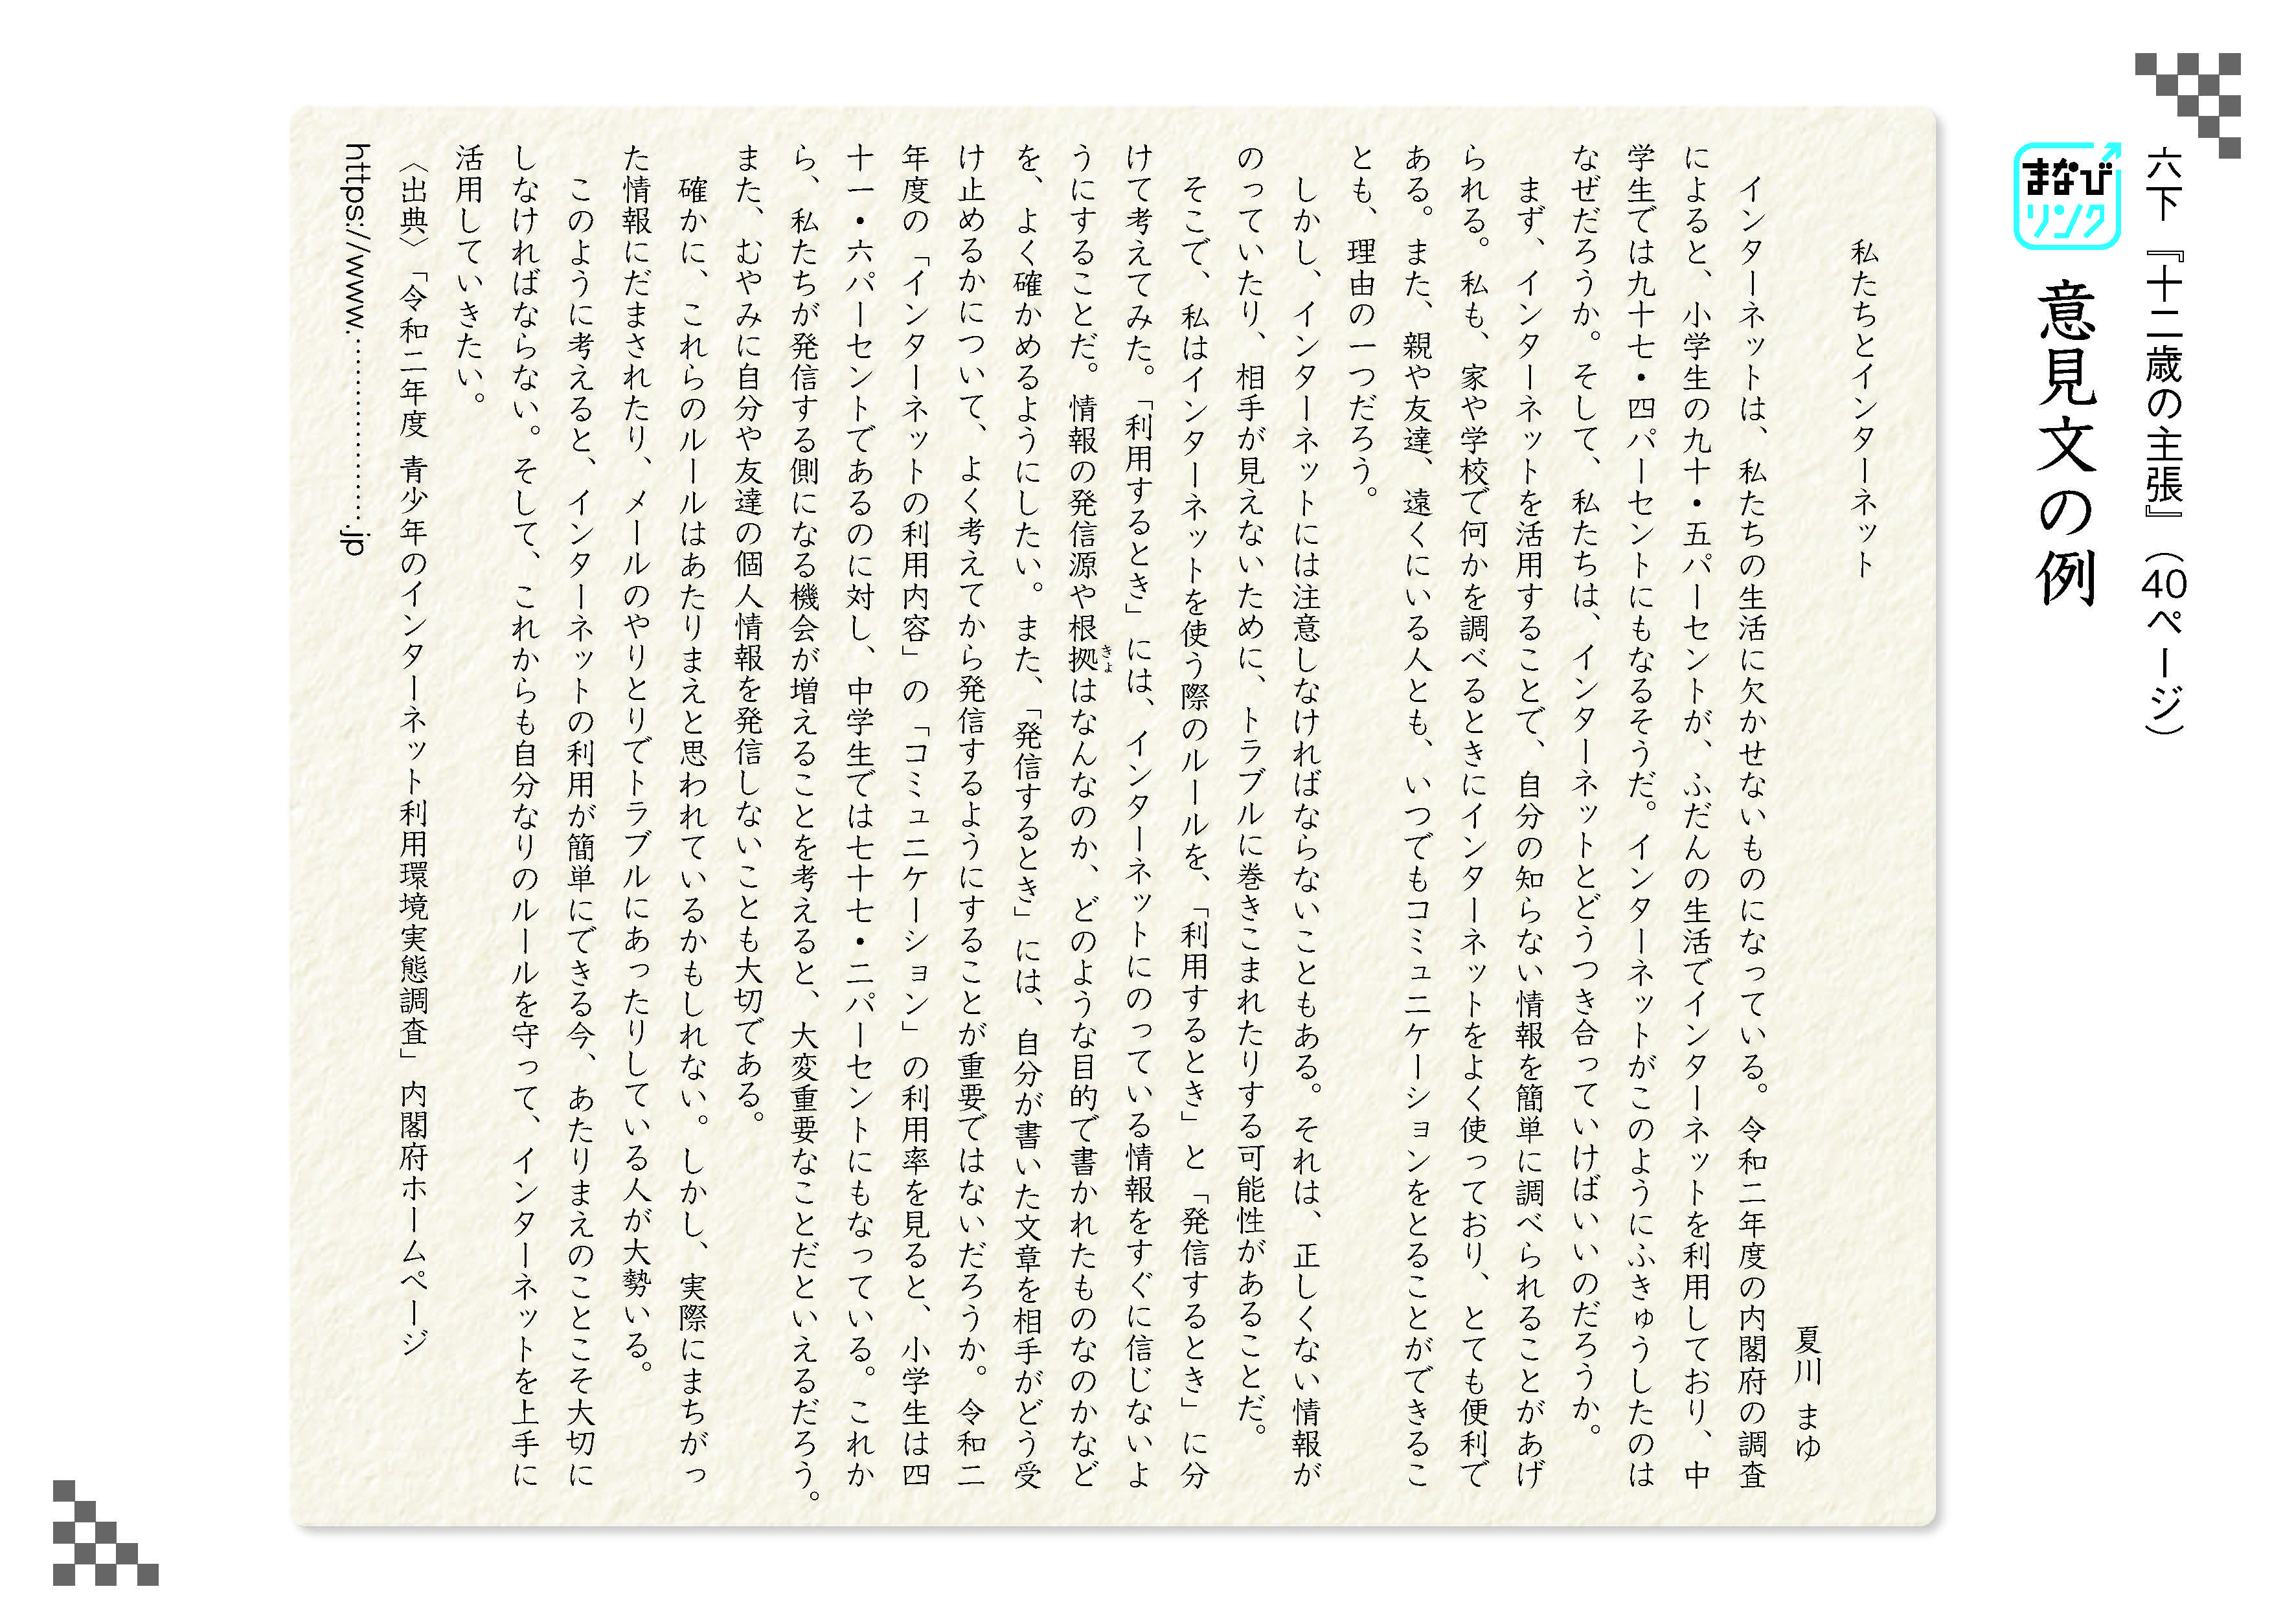 六下『十二歳の主張』（40ページ）
まなび
リンク
意見文の例
私たちとインターネット
夏川 まゆ
インターネットは、私たちの生活に欠かせないものになっている。令和二年度の内閣府の調査
によると、小学生の九十・五パーセントが、ふだんの生活でインターネットを利用しており、中
学生では九十七・四パーセントにもなるそうだ。インターネットがこのようにふきゅうしたのは
なぜだろうか。そして、私たちは、インターネットとどうつき合っていけばいいのだろうか。
まず、インターネットを活用することで、自分の知らない情報を簡単に調べられることがあげ
られる。私も、家や学校で何かを調べるときにインターネットをよく使っており、とても便利で
ある。また、親や友達、遠くにいる人とも、いつでもコミュニケーションをとることができるこ
とも、理由の一つだろう。
しかし、インターネットには注意しなければならないこともある。それは、正しくない情報が
のっていたり、相手が見えないために、トラブルに巻きこまれたりする可能性があることだ。
そこで、私はインターネットを使う際のルールを、「利用するとき」と「発信するとき」に分
けて考えてみた。「利用するとき」には、インターネットにのっている情報をすぐに信じないよ
うにすることだ。情報の発信源や根拠きょはなんなのか、どのような目的で書かれたものなのかなど
を、よく確かめるようにしたい。また、「発信するとき」には、自分が書いた文章を相手がどう受
け止めるかについて、よく考えてから発信するようにすることが重要ではないだろうか。令和二
年度の「インターネットの利用内容」の「コミュニケーション」の利用率を見ると、小学生は四
十一・六パーセントであるのに対し、中学生では七十七・二パーセントにもなっている。これか
ら、私たちが発信する側になる機会が増えることを考えると、大変重要なことだといえるだろう。
また、むやみに自分や友達の個人情報を発信しないことも大切である。
確かに、これらのルールはあたりまえと思われているかもしれない。しかし、実際にまちがっ
た情報にだまされたり、メールのやりとりでトラブルにあったりしている人が大勢いる。
このように考えると、インターネットの利用が簡単にできる今、あたりまえのことこそ大切に
しなければならない。そして、これからも自分なりのルールを守って、インターネットを上手に
活用していきたい。
〈出典〉「令和二年度 青少年のインターネット利用環境実態調査」内閣府ホームページ
https://www.………………….jp